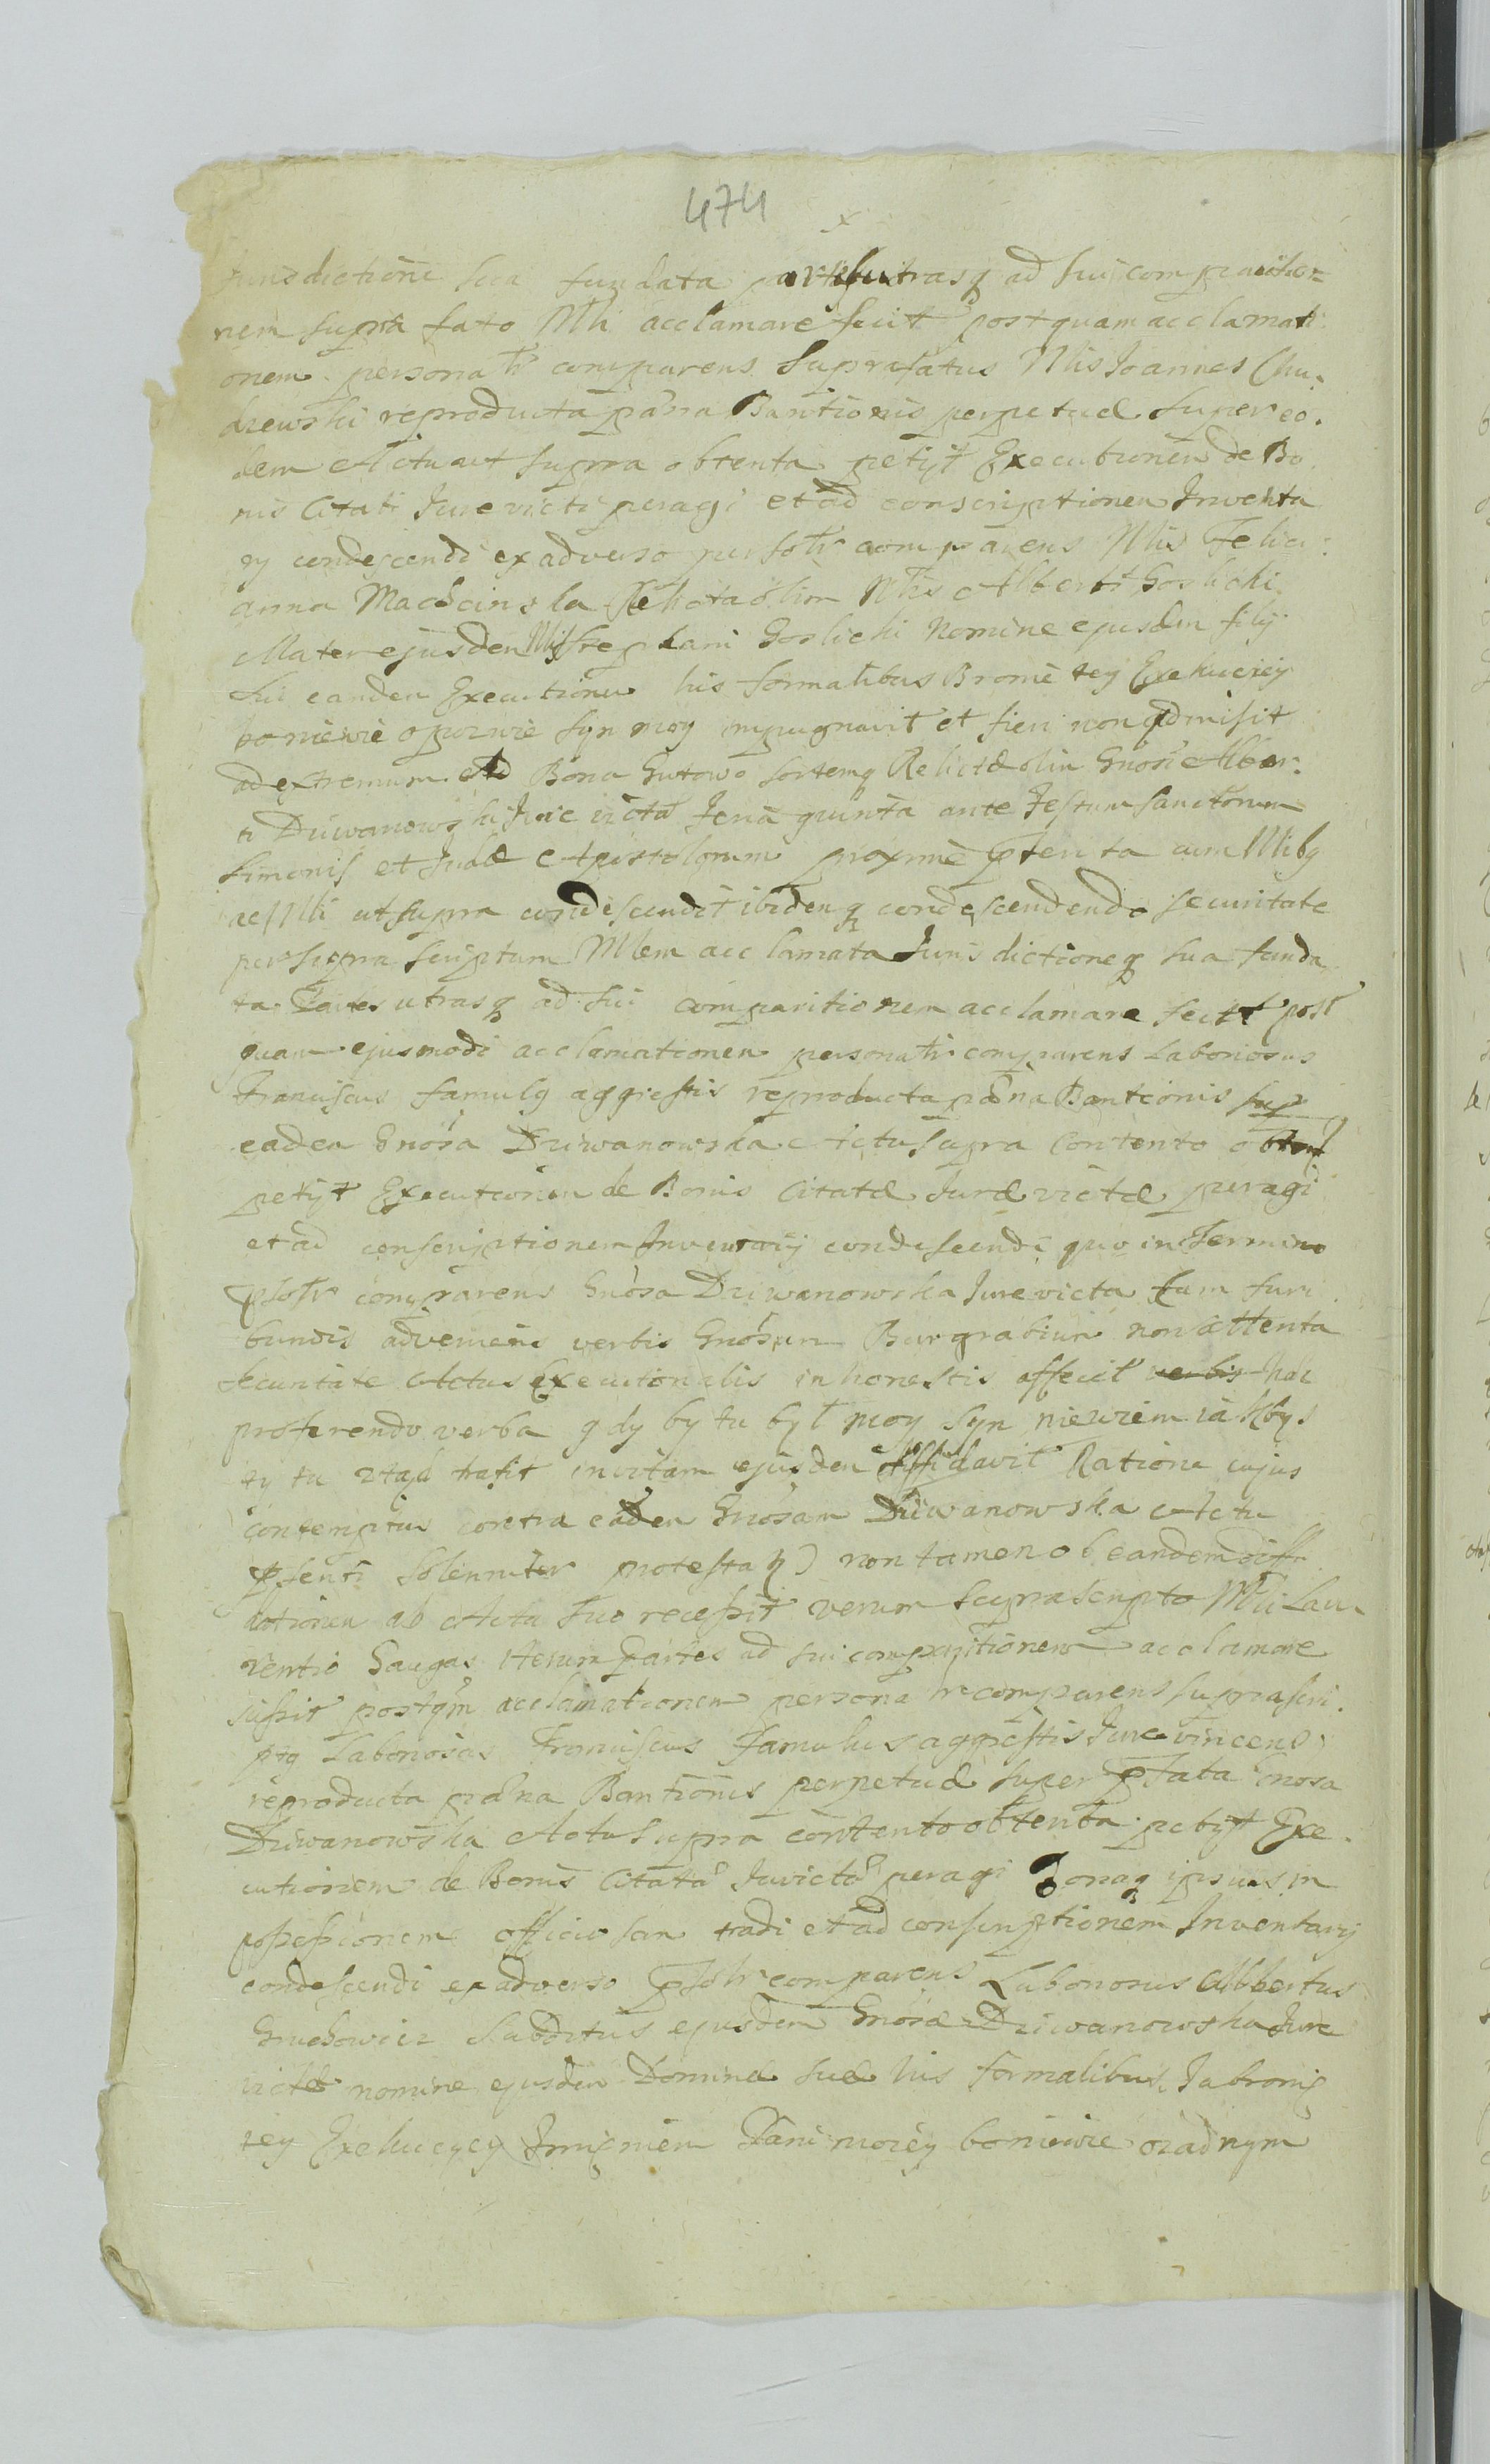 474
Jurisdictione sua fundata partesutrasq ad sui comparitio=
nem supra fato Mli acclamare fecit postquam acclamati
onem personatr comparens suprafatus Nlis Joannes Chu.
dzewski reproducta pana Banitionis perpetuæ super eo.
dem Actu ut supra obtenta petijt Executionem de Bo
nis Citati Jure victi peragi et ad conscriptionem Inventa
rij condescendi ex adverso persotr comparens Nlis Felici
anna Relicta olim Nlis Alberti Goslicki
Mater ejusdem Nlis Goslicki Nomine ejusdem filij
sui eandem Executionem his formalibus Bronie tey Exekuciey
bo niewie o pozwie syn moy impugnavit et fieri non admisit
ad extremum ad Bona Gutowo sortemq Relictæ olim Gnosi Alber.
ti Driwanowski Jure victæ feria quinta ante Festum Sanctorum
Simonis et Judæ Apostolorum proxime pterita cum Nlibq
ac Mli ut supra condescendit ibidemq condescendendo securitate
per supra scriptum Mlem acclamata Jurisdictioneq sua funda
ta Partes utrasq ad sui comparitionem acclamare fecit post
quam ejusmodi acclamationem personatr comparens Laboriosus
Franciscus famulq aggrestis reproducta pæna Banitionis sup
eadem Gnosa Driwanowska Actu supra contento obten
petijt Executionem de Bonis Citatæ Juræ victæ peragi
et ad conscriptionem Inventarij condescendi quo in Termino
psotr comparens Gnosa Driwanowska Jure victa tum furi
bundis adveniens verbis Gnosum Burgrabium non attenta
securitate Actus Executionalis inhonestis affecit verbis hæc
proferendo verba gdy by tu był moy syn niewiem iakbys
ty tu ztąd trafit invitam ejusdem diffidavit Ratione cujus
contemptus contra eadem Gnosam Driwanowska Actu
psenti solenniter protestatq) non tamen ob eandem diffi
dationem ab Actu suo recessit verum suprascripto Mli Lau-
rentio Gaugas iterum Partes ad sui comparitionem acclamare
jussit postqm acclamationem personatr comparens suprascri.
ptq Laboriosus Franciscus Famulus aggrestis Jure vincens
reproducta pæna Banitionis perpetuæ super pfata Gnosa
Driwanowska Actu supra contento obtenta petijt Exe.
cutionem de Bonis Citatæ Jurevictæ peragi Bonaq ipsius in
possessionem officiosam tradi et ad conscriptionem Inventarij
condescendi ex adverso psotr comparens Laboriosus Albertus
Gruchowicz Subditus ejusdem Gnosæ Driwanowska Jure
victæ nomine ejusdem Dominæ suæ his formalibus Ia bronię
tey Exekucyey Imięniem Pani moiey bo niewie ozadnym